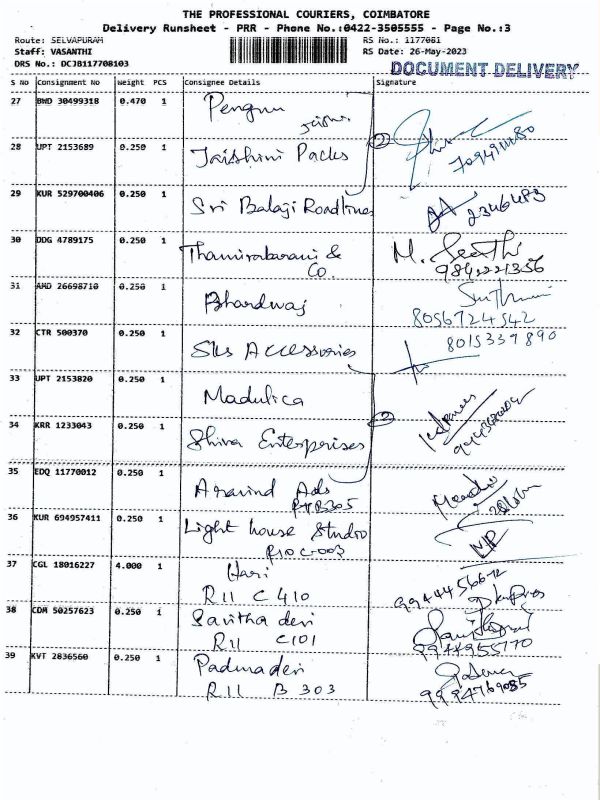 THE PROFESSIONAL COURIERS, COIMBATORE
Delivery Runsheet - PRR - Phone No.:0422-3505555 - Page No.:3
Route: SELVAPURAM RS No.: 1177081
Staff: VASANTHI RS Date: 26-May-2023
DRS No.: DCJB117708103 DOCUMENT DELIVERY
S No Consignment No Weight PCS Consignee Details Signature
27 BWD 30499318 0.470 1 Penguin
28 UPT 2153689 0.250 1 Jaishini Packs
29 KUR 529700406 0.250 1 Sri Balaji Roadlines 2346483
30 DDG 4789175 0.250 1 Thamirabarani &
Co. 9842221356
31 AMD 26698710 0.250 1 Bhardwaj
8056724542
32 CTR 500370 0.250 1 Sks Accessories 8015339890
33 UPT 2153820 0.250 1 Madulica
34 KRR 1233043 0.250 1 Shiva Enterprises
35 EDQ 11770012 0.250 1 Aravind Ads
36 KUR 694957411 0.250 1 Light house Studio
R10 C-003
37 CGL 18016227 4.000 1 Hari
R11 C 410
38 CDM 50257623 0.250 1 Savitha devi
R11 C101 9944955770
39 KVT 2836560 0.250 1 Padma devi
R11 B 303 9994769085